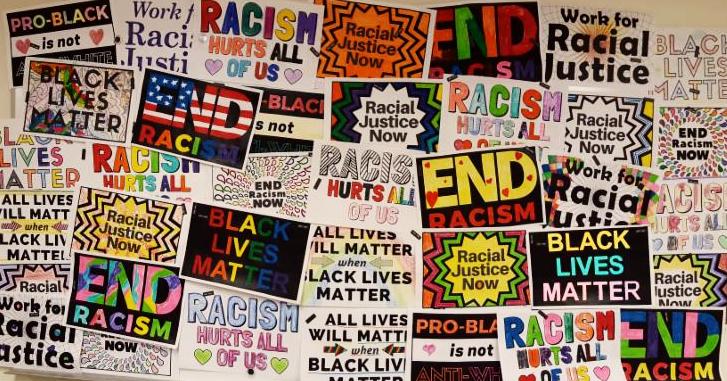 PRO-BLACK
is not
ANTI-WHITE
Work f
Raci
Justi
RACISM
HURTS ALL
OF US
Racial
Justice
Now
END
RACISM
Work for
Racial
Justice
BLACK
LIVES
MATTER
BLACK
LIVES
MATTER
END
RACISM
-BLACK
is not
Racial
Justice
Now
RACISM
HURTS ALL
OF US
Racial
Justice
Now
END
Racism
NOW
BLACK
LIVES
MATTER
RACISM
HURTS ALL
END
Racism
NOW
RACIS
HURTS ALL
OF US
END
RACISM
Work for
Racial
Justice
RACISM
HURTS ALL
OF US
ALL LIVES
WILL MATT
when
BLACK LIV
Racial
Justice
Now
BLACK
LIVES
MATTER
ALL LIVES
WILL MATTER
when
BLACK LIVES
MATTER
Racial
Justice
Now
BLACK
LIVES
MATTER
Racial
Justice
Now
Racial
Work for
Racial
Justice
END
RACISM
NOW
RACISM
HURTS ALL
OF US
ALL LIVES
WILL MATT
when
BLACK LIV
MATTER
PRO-BLA
is not
ANTI-WH
RACISM
HURTS ALL
OF US
END
RACISM